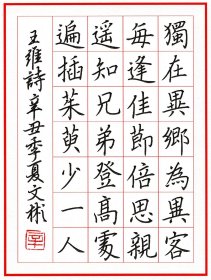 獨在異鄉為異客
每逢佳節倍思親
遥知兄弟登高處
遍插茱萸少一人
王維詩辛丑季夏文彬